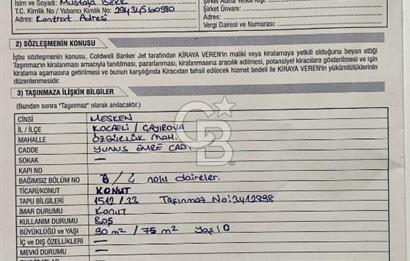 İsim ve Soyadı: Mustafa
T.C. Kimlik No / Yabancı Kimlik No: 29434560980
Adres: Kontrat Adresi
Şirket Ünvanı:
Adres:
Vergi Dairesi ve Numarası:
2) SÖZLEŞMENİN KONUSU
İşbu sözleşmenin konusu, Coldwell Banker Jet tarafından KİRAYA VEREN'in maliki veya kiralamaya yetkili olduğunu beyan ettiği
Taşınmaz'ın kiralanması amacıyla tanıtılması, pazarlanması, kiralanmasına aracılık edilmesi, potansiyel kiracılara gösterilmesi ve işin
kiralama aşamasına getirilmesi ve bunun karşılığında Kiracıdan tahsil edilecek hizmet bedeli ile KİRAYA VEREN'in yükümlülüklerinin
düzenlenmesidir.
3) TAŞINMAZA İLİŞKİN BİLGİLER
(Bundan sonra "Taşınmaz" olarak anılacaktır.)
CİNSİ MESKEN
İL / İLÇE KOCAELİ / ÇAYIROVA
MAHALLE ÖZGÜRLÜK MAH.
CADDE YUNUS EMRE CAD.
SOKAK —
KAPI NO
BAĞIMSIZ BÖLÜM NO nolu daireler.
TİCARİ/KONUT KONUT
TAPU BİLGİLERİ 1512 / 23 Taşınmaz No: 2412898
İMAR DURUMU Konut
KULLANIM DURUMU BOŞ
BÜYÜKLÜĞÜ ve YAŞI 90 m² / 75 m² Yaş: 0
İÇ ve DIŞ ÖZELLİKLERİ —
MEVKİ DURUMU —
CB